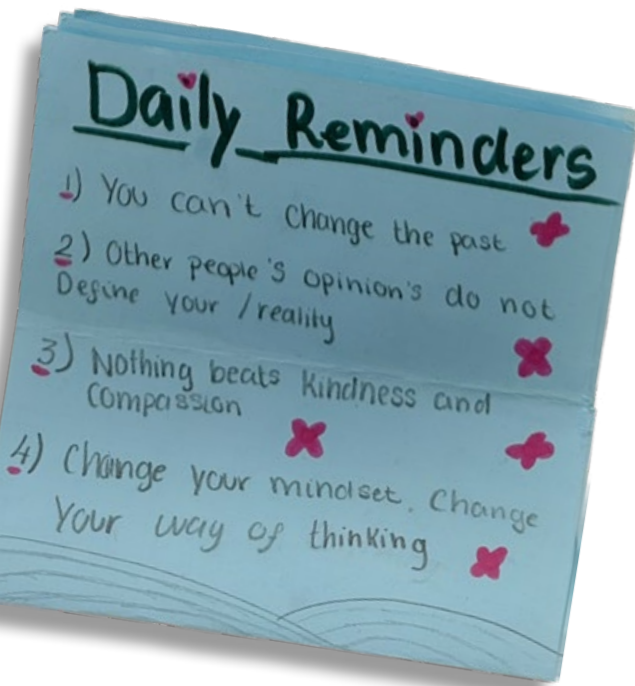 Daily Reminders
1) You can't change the past
2) Other people's opinion's do not
Define your /reality
3) Nothing beats kindness and
compassion
4) Change your mindset. Change
Your way of thinking